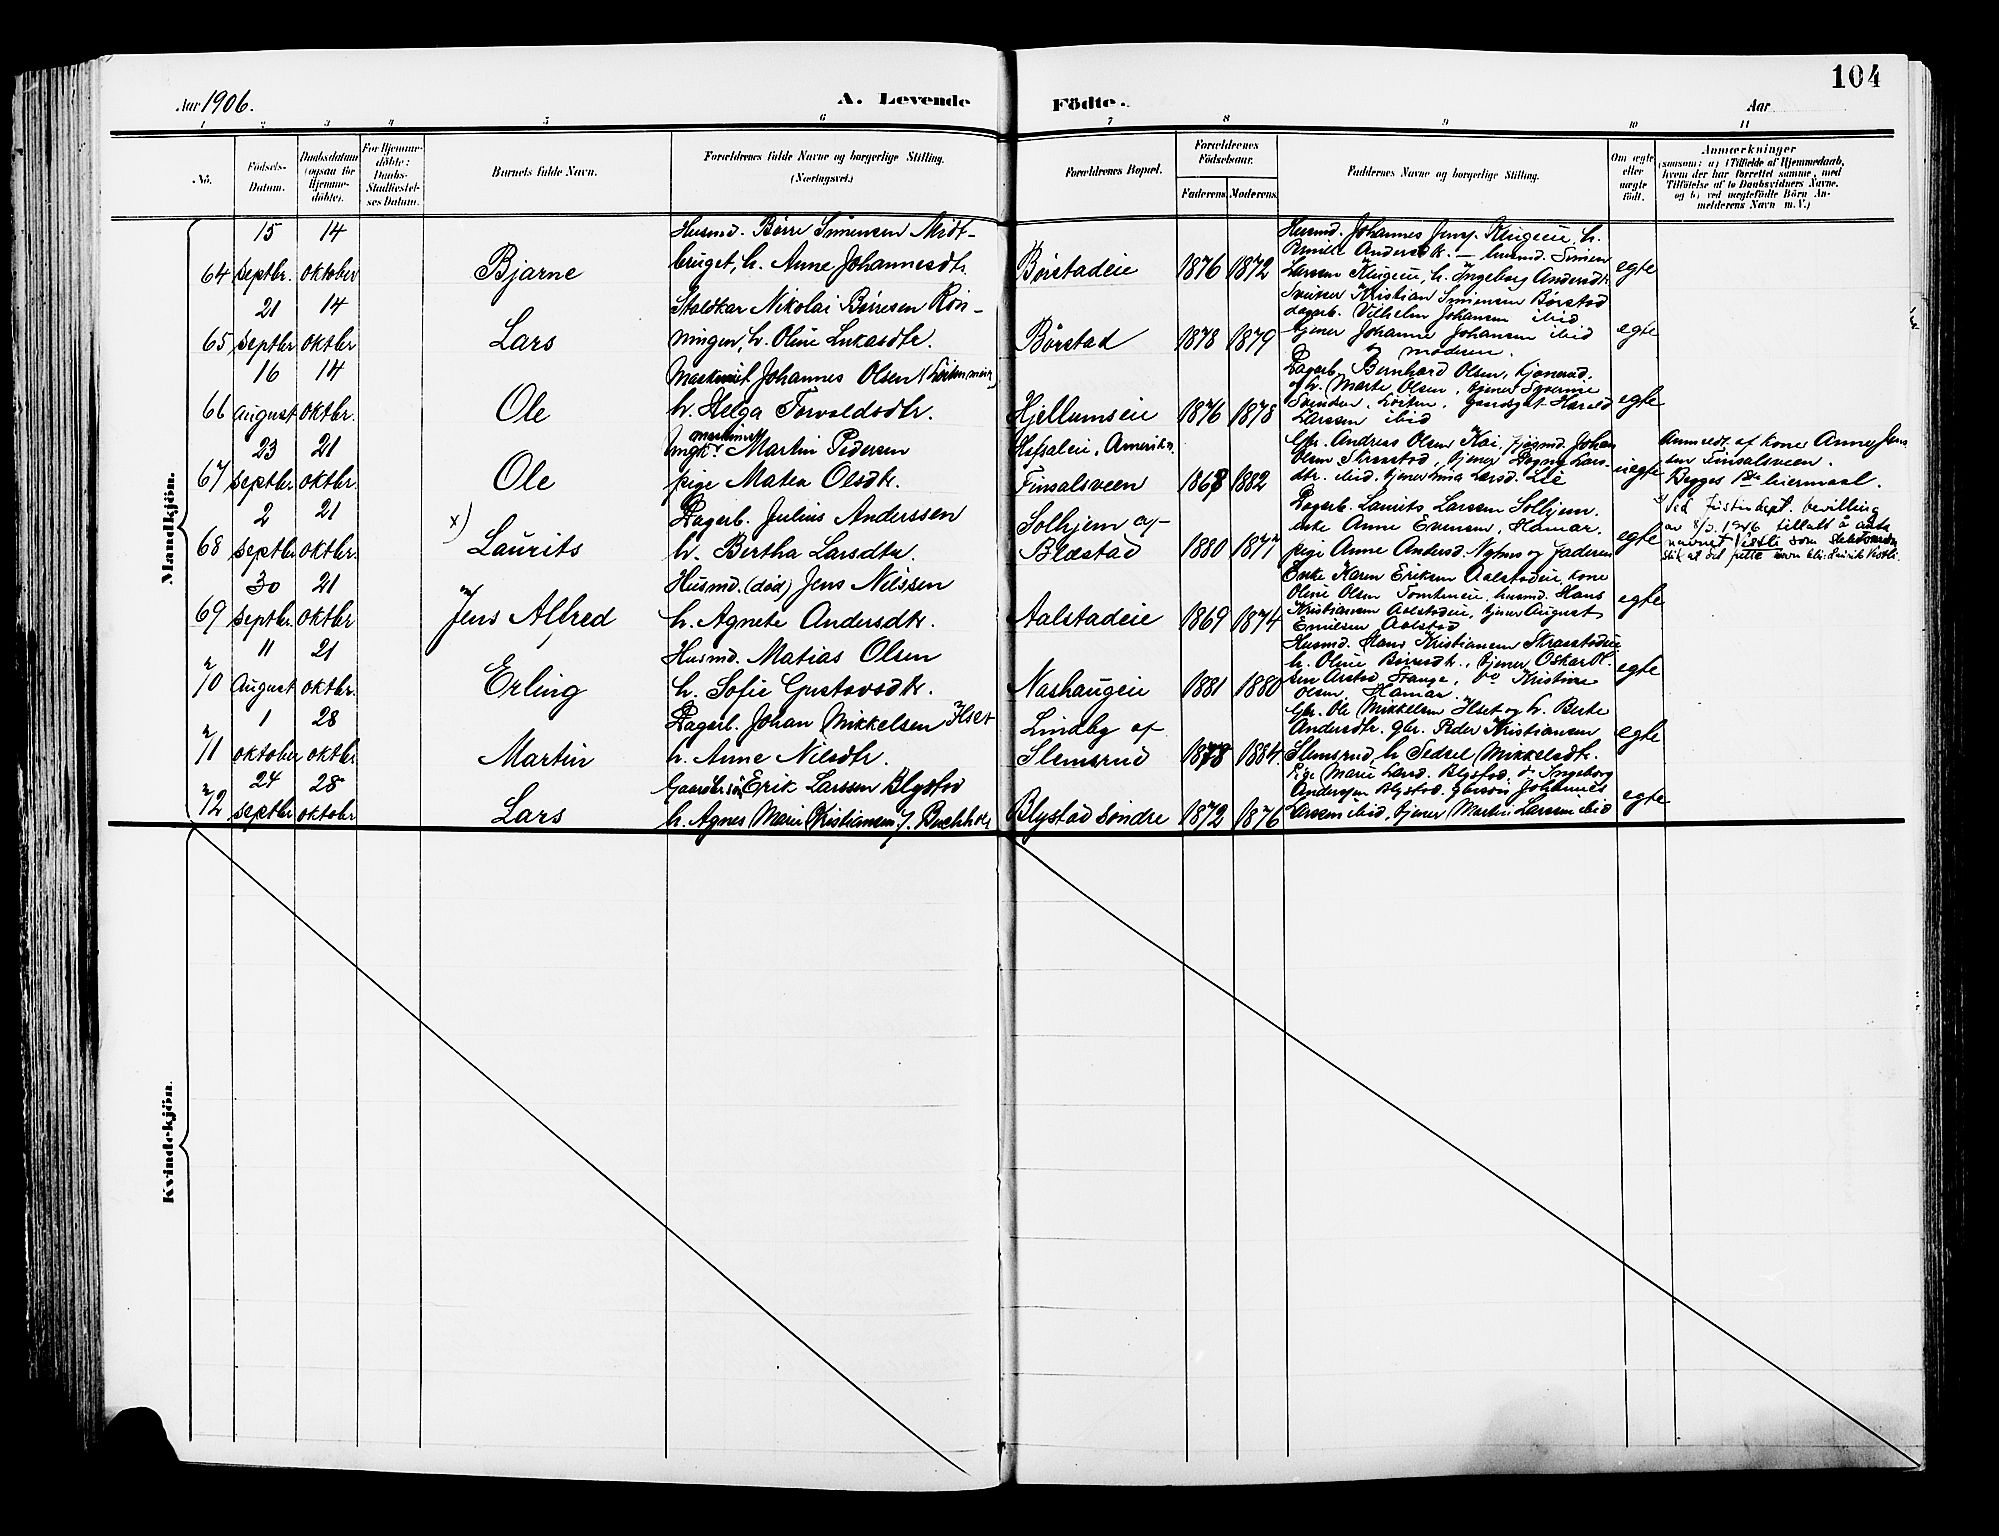 104
Aar 1906.
A. Levende
Födte.
Aar
1 2 3 4 5 6 7 8 9 10 11
No.
Födsels-
Datum.
Daabsdatum
(ogsaa for
Hjemme-
döbte).
For Hjemme-
döbte:
Daabs-
Stadfæstel-
ses Datum.
Barnets fulde Navn.
Forældrenes fulde Navne og borgerlige Stilling.
(Næringsvei.)
Forældrenes Bopæl.
Forældrenes
Födselsaar.
Faderens. Moderens.
Faddernes Navne og borgerlige Stilling.
Om ægte
eller
uægte
født.
Anmærkninger
(saasom: a) i Tilfælde af Hjemmedaab,
hvem der har forrettet samme, med
Tilföielse af to Daabsvidners Navne,
og b) ved uægtefödte Börn An-
melderens Navn m. V.)
Mandkjön.
64
15
Septbr.
14
oktober
Bjarne
Husmd. Børre Simensen Midt-
bruget, h. Anne Johannesdtr.
Børstadeie
1876 1872
Husmd. Johannes Jensp. Kingeeie, h.
Andersdtr. – husmd. Simen
Larsen Kingeeie, h. Ingeborg Andersdtr.
egte
65
21
Septbr
14
oktbr
Lars
Staldkar Nikolai Børresen Røn-
ningen, h. Oline Lukasdtr.
Børstad
1878 1879
Sveitser Kristian Simensen Børstad
dagarb. Vilhelm Johansen ibid
tjener Johanne Johansen ibid
og moderen.
egte
66
16
August
14
oktbr.
Ole
Maskinist Johannes Olsen
h. Helga Torvaldsdtr.
Hjellumseie
1876 1878
Dagarb. Bernhard Olsen,
og h. Marte Olsen, tjener Sverine
Svendsen, Løiten, gaardsgut Harald
Larssen ibid
egte
67
23
Septbr.
21
oktbr.
Ole
maskinist
Ungkr Martin Pedersen
pige Matea Olsdtr.
Hofsaleie, Amerika.
Finsalsveen
1868 1882
Gbr. Andreas Olsen Kai, Johan
Olsen Skraastad, tjener Dagny Lars-
dtr. ibid. tjener Lina Larsd. Lie
uegte
Anmeldt af kone Anne Jen
sen Finsalsveen.
Begges 1ste leiermaal.
68
2
Septbr.
21
oktbr.
x)
Laurits
Dagarb. Julius Anderssen
h. Bertha Larsdtr.
Solhjem af
Blæstad
1880 1877
Dagarb. Laurits Larssen Solhjem.
enke Anne Evensen, Hamar.
pige Anne Andersd. Nyhus og faderen
egte
x) Ved Justisdept. bevilling
av 8/3. 1946 tillatt å anta
navnet Vestli som slektsnavn
slik at det fulle navn blir: Laurits Vestli.
69
30
Septbr.
21
oktbr
Jens Alfred
Husmd. (død) Jens Nilssen
h. Agnete Andersdtr.
Aalstadeie
1869 1874
Enke Karen Eriksen Aalstadeie, kone
Oline Olsen Tomteneie, husmd. Hans
Kristiansen Aalstadeie, tjener August
Emilsen Aalstad
egte
70
11
August
21
oktbr.
Erling
Husmd. Matias Olsen
h. Sofie Gustavsdtr.
Nashaugeie
1881 1880
Husmd. Hans Kristiansen Skraastadeie
h. Oline Børresdtr., tjener Oskar Ol-
sen Arstad Stange, do Kristine
Olsen, Hamar.
egte
71
1
oktober
28
oktbr
Martin
Dagarb. Johan Mikkelsen Ilset
h. Anne Nilsdtr.
Lindby af
Slemsrud
1878 1884
Gbr. Ole Mikkelsen Ilset og h. Berte
Andersdtr. gbr. Peder Kristiansen
Slemsrud, h Sedsel Mikkelsdtr.
egte
72
24
Septbr
28
oktobr
Lars
Gaardbr.søn Erik Larssen Blystad
h. Agnes Marie Kristiansen f. Buchholz
Blystad søndre
1872 1876
Pige Marie Larsd. Blystad, do Ingeborg
Anderssen Blystad. gbrsøn Johannes
Larsen ibid, tjener Martin Larssen ibid
egte
Kvindekjön.